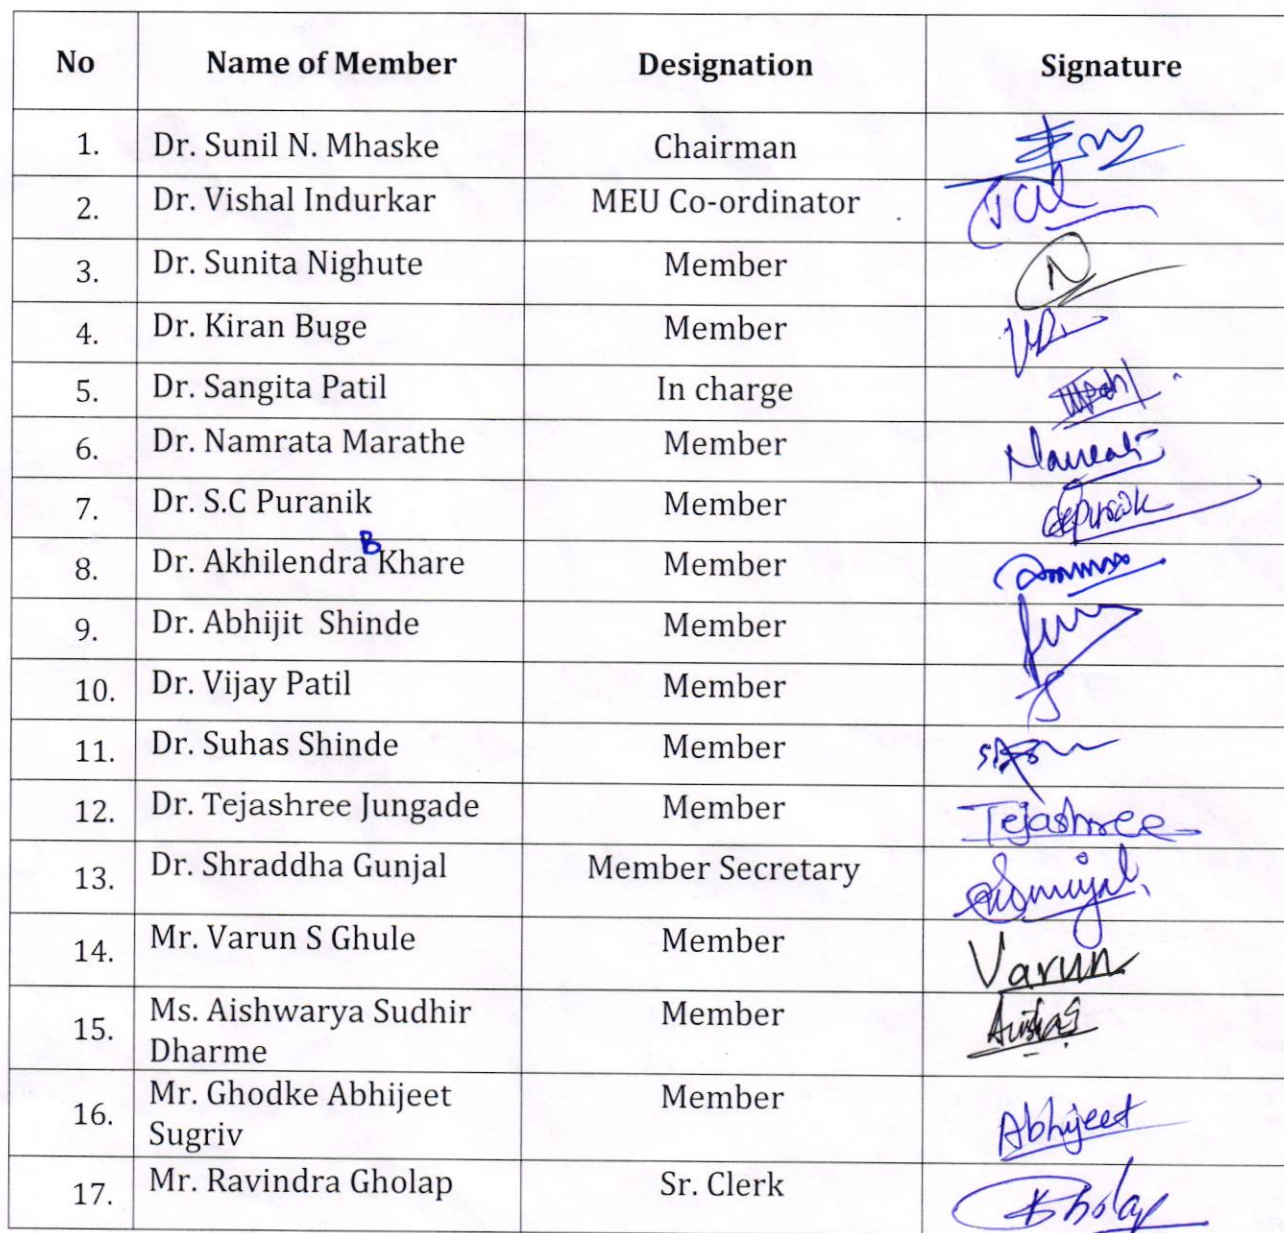 No Name of Member Designation Signature
1. Dr. Sunil N. Mhaske Chairman
2. Dr. Vishal Indurkar MEU Co-ordinator
3. Dr. Sunita Nighute Member N
4. Dr. Kiran Buge Member
5. Dr. Sangita Patil In charge
6. Dr. Namrata Marathe Member
7. Dr. S.C Puranik Member
B
8. Dr. Akhilendra Khare Member
9. Dr. Abhijit Shinde Member
10. Dr. Vijay Patil Member
11. Dr. Suhas Shinde Member
12. Dr. Tejashree Jungade Member Tejashree
13. Dr. Shraddha Gunjal Member Secretary
14. Mr. Varun S Ghule Member Varun
15. Ms. Aishwarya Sudhir Member
Dharme
16. Mr. Ghodke Abhijeet Member Abhijeet
Sugriv
17. Mr. Ravindra Gholap Sr. Clerk